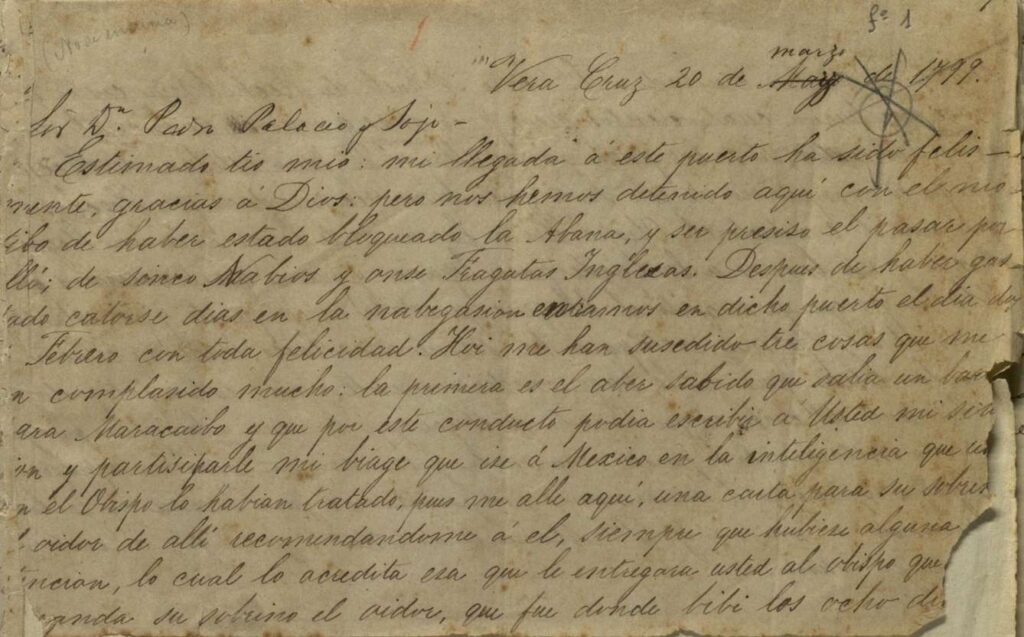 fº 1
marzo
Vera Cruz 20 de May de 1799.
Sor Dn. Pedro Palacio y Sojo -
Estimado tio mio: mi llegada á este puerto ha sido felis-
mente, gracias á Dios: pero nos hemos detenido aquí con el mo-
tibo de haber estado bloqueado la Abana, y ser presiso el pasar por
llí; de sinco Nabios y onse Fragatas Inglesas. Despues de haber gas
tado catorse dias en la nabegasion entramos en dicho puerto el dia dos
Febrero con toda felicidad. Hoi me han susedido tre cosas que me
n complasido mucho: la primera es el aber sabido que salia un bar
ara Maracaibo y que por este conducto podia escribir á Usted mi situ
ion y partisiparle mi biage que ise á Mexico en la inteligencia que us
n el Obispo lo habian tratado, pues me alle aquí, una carta para su sobrin
l oidor de allí recomendandome á el, siempre que hubiese alguna
encion, lo cual lo acredita esa que le entregara usted al obispo que
manda su sobrino el oidor, que fue donde bibi los ocho di